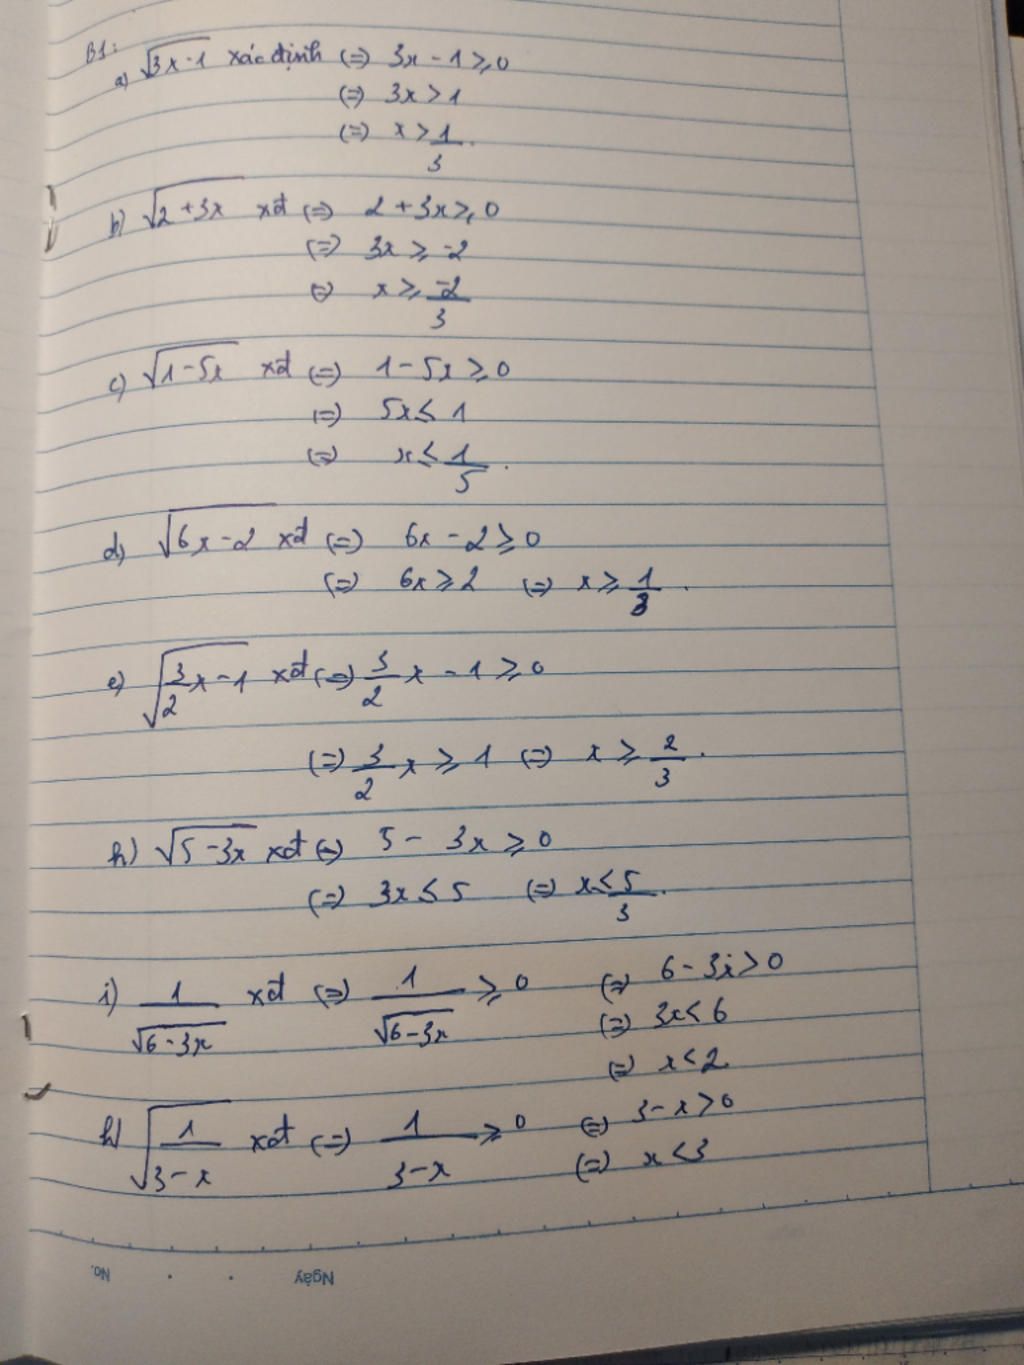 B1:
a) √3x-1 xác định (=) 3x - 1 ⩾ 0
(=) 3x > 1
(=) x > 1/3.
b) √2+3x xđ (=) 2 + 3x ⩾ 0
(=) 3x ⩾ -2
(=) x ⩾ -2/3
c) √1-5x xđ (=) 1 - 5x ⩾ 0
(=) 5x ⩽ 1
(=) x ⩽ 1/5.
d) √6x-2 xđ (=) 6x - 2 ⩾ 0
(=) 6x ⩾ 2 (=) x ⩾ 1/3.
e) √3/2x-1 xđ (=) 3/2x - 1 ⩾ 0
(=) 3/2x ⩾ 1 (=) x ⩾ 2/3.
h) √5-3x xđ (=) 5 - 3x ⩾ 0
(=) 3x ⩽ 5 (=) x ⩽ 5/3.
i) 1/√6-3x xđ (=) 1/√6-3x ⩾ 0 (=) 6 - 3x > 0
(=) 3x < 6
(=) x < 2
h) √1/3-x xđ (=) 1/3-x ⩾ 0 (=) 3-x > 0
(=) x < 3
No.
Ngày